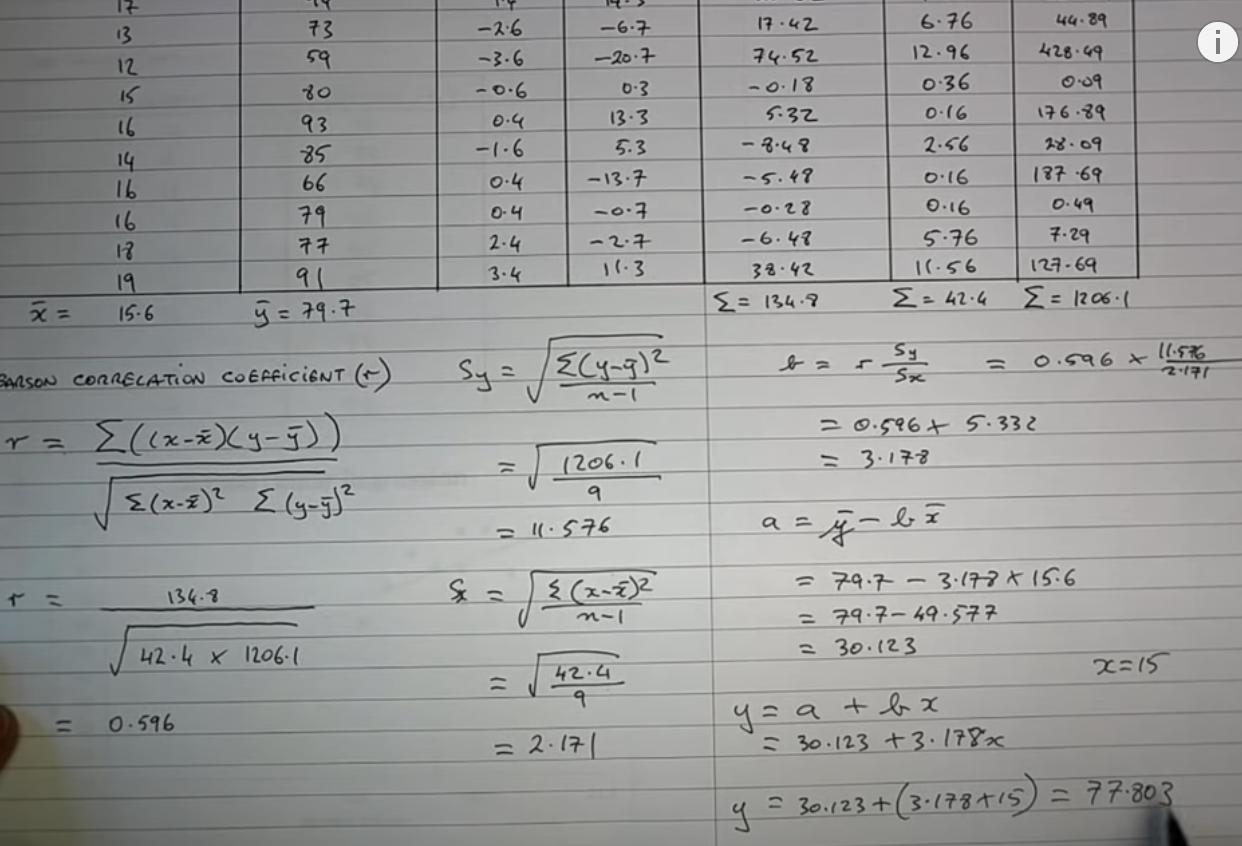 17
13 73 -2.6 -6.7 17.42 6.76 44.89
12 59 -3.6 -20.7 74.52 12.96 428.49
15 80 -0.6 0.3 -0.18 0.36 0.09
16 93 0.4 13.3 5.32 0.16 176.89
14 85 -1.6 5.3 -8.48 2.56 28.09
16 66 0.4 -13.7 -5.48 0.16 187.69
16 79 0.4 -0.7 -0.28 0.16 0.49
18 77 2.4 -2.7 -6.48 5.76 7.29
19 91 3.4 11.3 38.42 11.56 127.69
x̄ = 15.6 ȳ = 79.7 Σ = 134.8 Σ = 42.4 Σ = 1206.1
EARSON CORRELATION COEFFICIENT (r)
r = Σ((x-x̄)(y-ȳ)) / √(Σ(x-x̄)² Σ(y-ȳ)²)
r = 134.8 / √(42.4 × 1206.1)
= 0.596
Sy = √(Σ(y-ȳ)² / n-1)
= √(1206.1 / 9)
= 11.576
Sx = √(Σ(x-x̄)² / n-1)
= √(42.4 / 9)
= 2.171
b = r Sy/Sx = 0.596 × 11.576/2.171
= 0.596 × 5.332
= 3.178
a = ȳ - b x̄
= 79.7 - 3.178 × 15.6
= 79.7 - 49.577
= 30.123
x = 15
y = a + b x
= 30.123 + 3.178x
y = 30.123 + (3.178 × 15) = 77.803